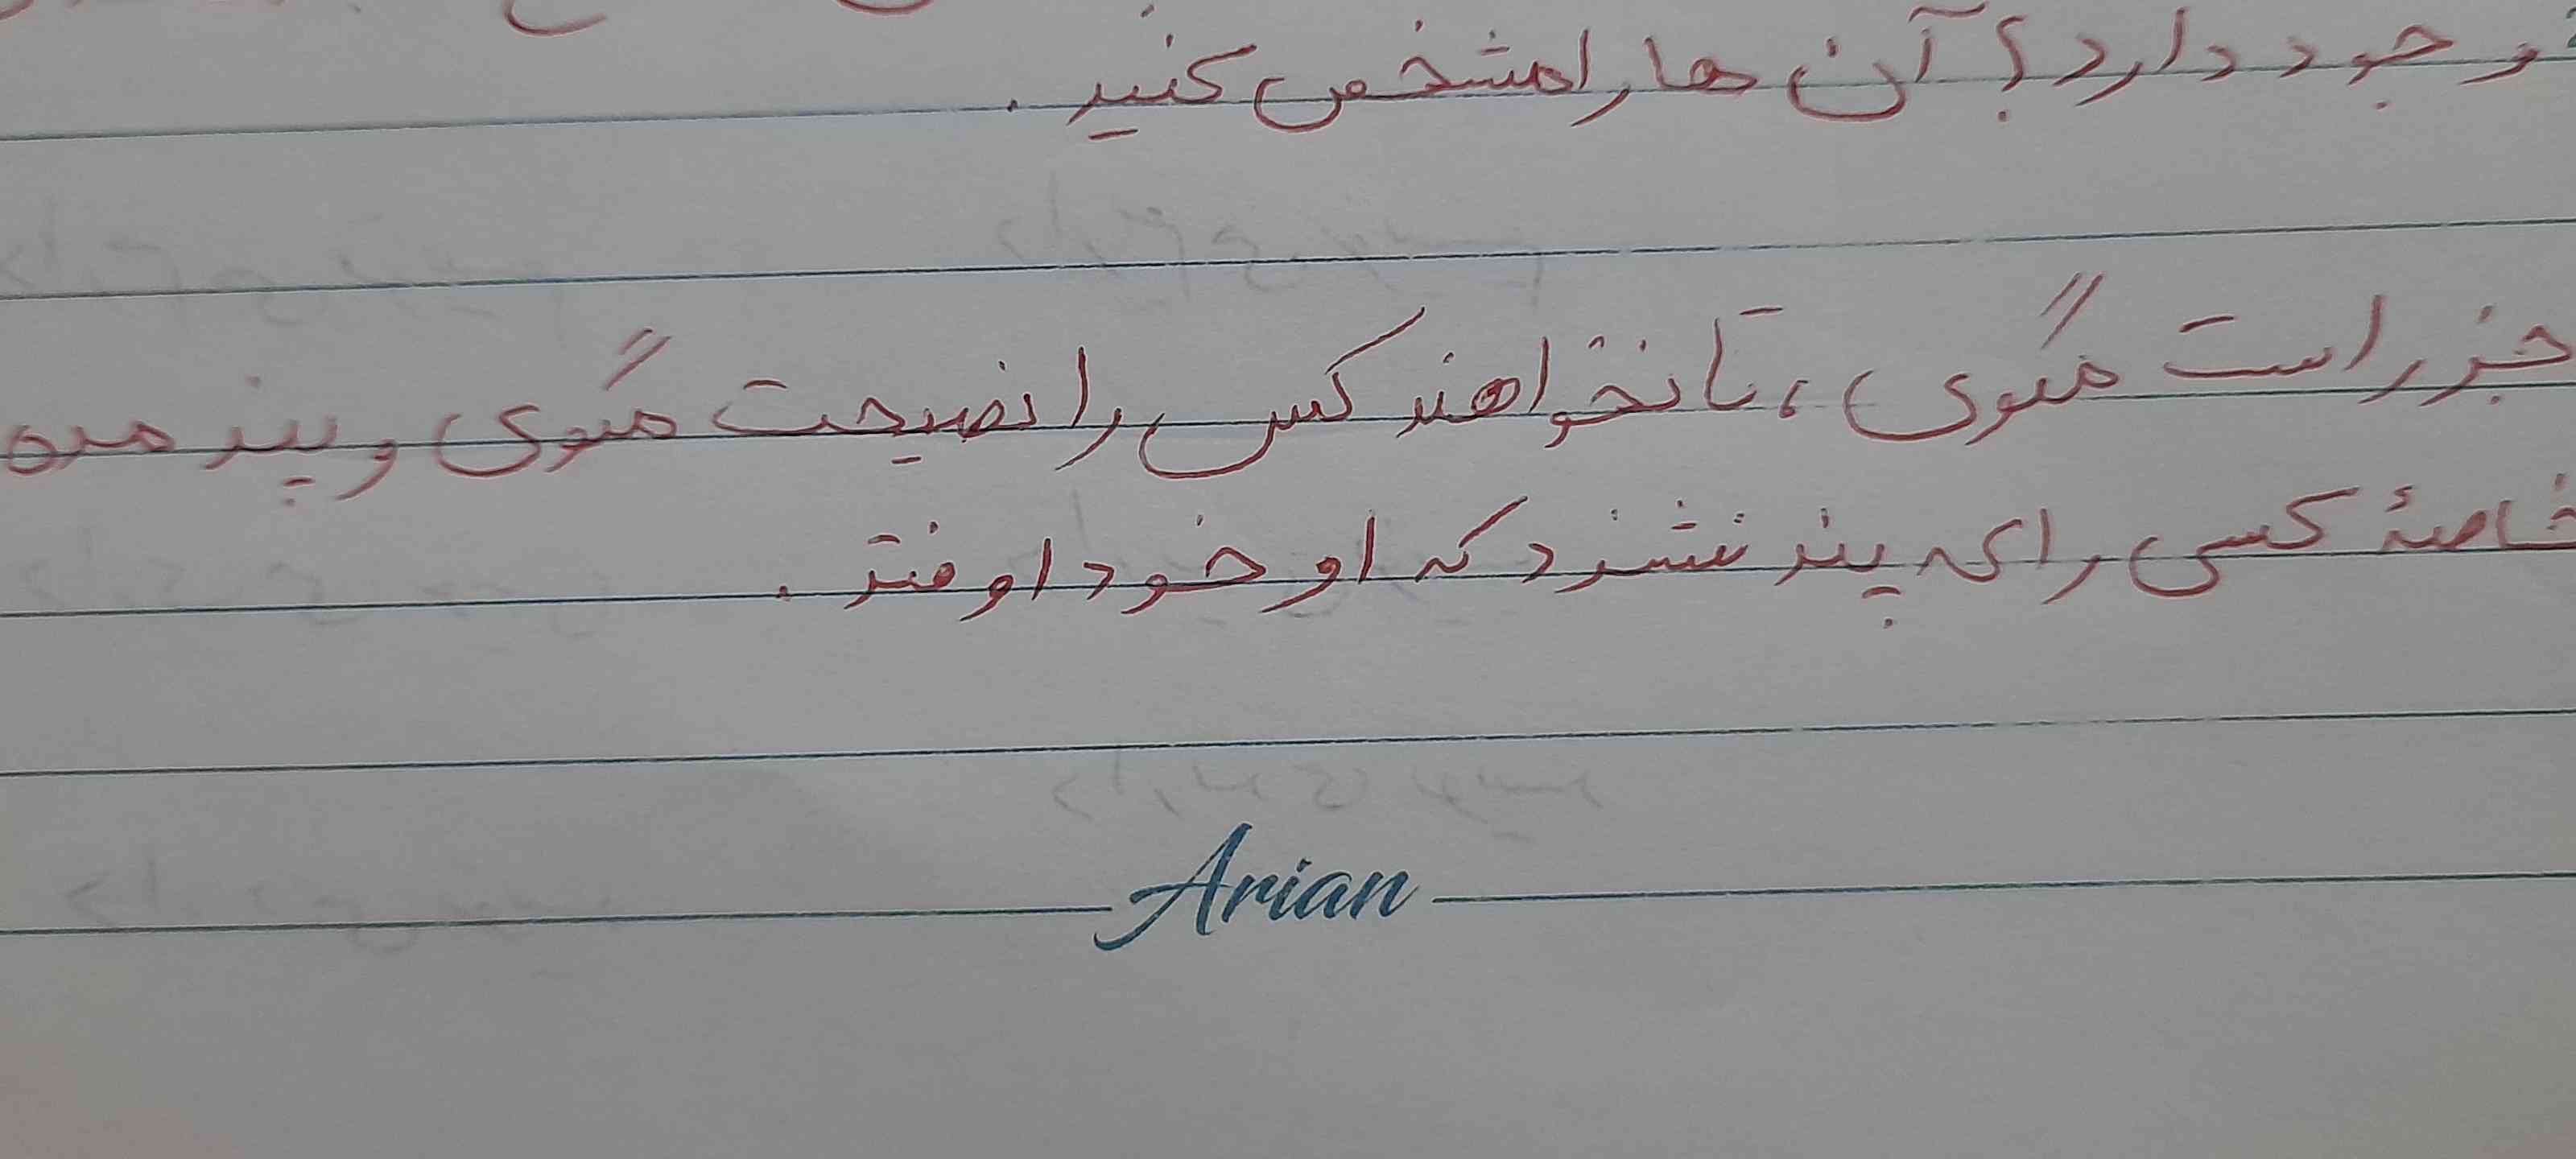 وجود دارد؟ آن ها را مشخص کنید.
جز راست مگوی، تا نخواهند کس را نصیحت مگوی و پند مده
خاصهٔ کسی را که پند نشنود که او خود اوفتد.
Arian